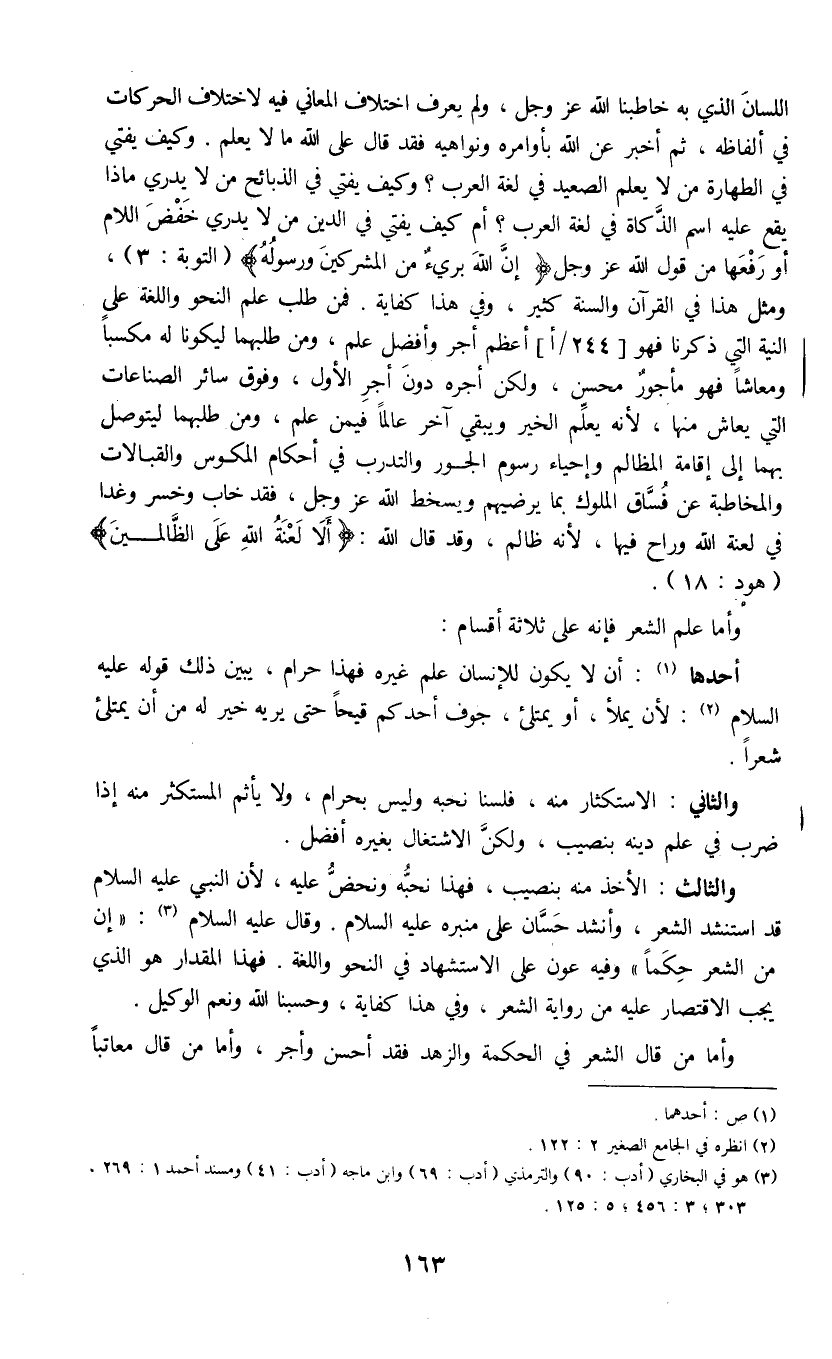 اللسانَ الذي به خاطبنا الله عز وجل ، ولم يعرف اختلاف المعاني فيه لاختلاف الحركات
في ألفاظه ، ثم أخبر عن الله بأوامره ونواهيه فقد قال على الله ما لا يعلم . وكيف يفتي
في الطهارة من لا يعلم الصعيد في لغة العرب ؟ وكيف يفتي في الذبائح من لا يدري ماذا
يقع عليه اسم الذَّكاة في لغة العرب ؟ أم كيف يفتي في الدين من لا يدري خَفْضَ اللام
أو رَفْعَها من قول الله عز وجل ﴿ إنَّ اللهَ بريءٌ من المشركينَ ورسولُهُ﴾ ( التوبة : ٣ ) ،
ومثل هذا في القرآن والسنة كثير ، وفي هذا كفاية . فمن طلب علم النحو واللغة على
النية التي ذكرنا فهو [ ٢٤٤/أ ] أعظم أجر وأفضل علم ، ومن طلبهما ليكونا له مكسباً
ومعاشاً فهو مأجورٌ محسن ، ولكن أجره دونَ أجرِ الأول ، وفوق سائر الصناعات
التي يعاش منها ، لأنه يعلِّم الخير ويبقي آخر عالماً فيمن علم ، ومن طلبهما ليتوصل
بهما إلى إقامة المظالم وإحياء رسوم الجور والتدرب في أحكام المكوس والقبالات
والمخاطبة عن فُسَّاق الملوك بما يرضيهم ويسخط الله عز وجل ، فقد خاب وخسر وغدا
في لعنة الله وراح فيها ، لأنه ظالم ، وقد قال الله : ﴿ أَلَا لَعْنَةُ اللهِ عَلَى الظَّالمينَ﴾
( هود : ١٨ ) .
وأما علم الشعر فإنه على ثلاثة أقسام :
أحدها (١) : أن لا يكون للإنسان علم غيره فهذا حرام ، يبين ذلك قوله عليه
السلام (٢) : لأن يملأ ، أو يمتلئ ، جوف أحدكم قيحاً حتى يريه خير له من أن يمتلئ
شعراً .
والثاني : الاستكثار منه ، فلسنا نحبه وليس بحرام ، ولا يأثم المستكثر منه إذا
ضرب في علم دينه بنصيب ، ولكنَّ الاشتغال بغيره أفضل .
والثالث : الأخذ منه بنصيب ، فهذا نحبُّه ونحضُّ عليه ، لأن النبي عليه السلام
قد استنشد الشعر ، وأنشد حَسَّان على منبره عليه السلام . وقال عليه السلام (٣) : « إن
من الشعر حِكَماً » وفيه عون على الاستشهاد في النحو واللغة . فهذا المقدار هو الذي
يجب الاقتصار عليه من رواية الشعر ، وفي هذا كفاية ، وحسبنا الله ونعم الوكيل .
وأما من قال الشعر في الحكمة والزهد فقد أحسن وأجر ، وأما من قال معاتباً
(١) ص : أحدهما .
(٢) انظره في الجامع الصغير ٢ : ١٢٢ .
(٣) هو في البخاري ( أدب : ٩٠ ) والترمذي ( أدب : ٦٩ ) وابن ماجه ( أدب : ٤١ ) ومسند أحمد ١ : ٢٦٩ ،
٣٠٣ ؛ ٣ : ٤٥٦ ؛ ٥ : ١٢٥ .
١٦٣